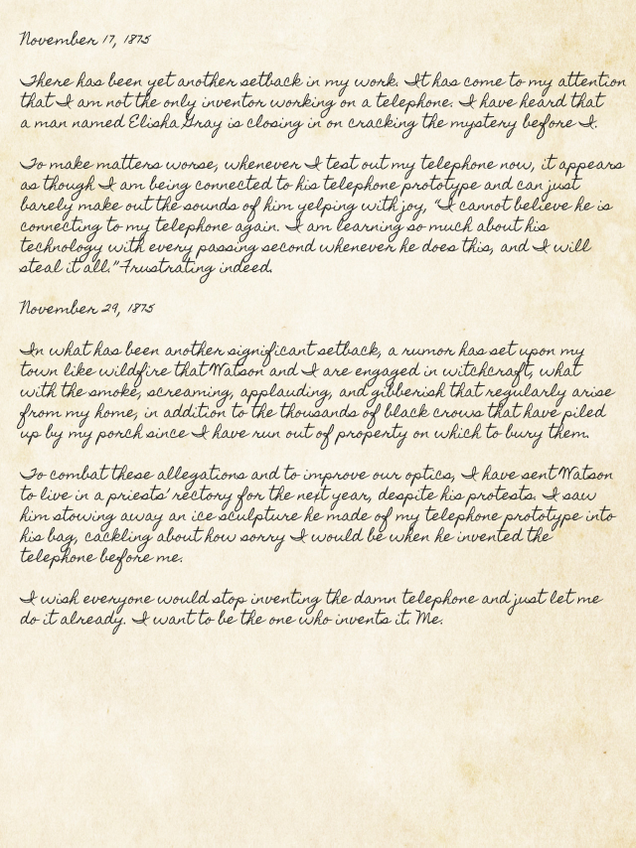 November 17, 1875
There has been yet another setback in my work. It has come to my attention
that I am not the only inventor working on a telephone. I have heard that
a man named Elisha Gray is closing in on cracking the mystery before I.
To make matters worse, whenever I test out my telephone now, it appears
as though I am being connected to his telephone prototype and can just
barely make out the sounds of him yelping with joy, “I cannot believe he is
connecting to my telephone again. I am learning so much about his
technology with every passing second whenever he does this, and I will
steal it all.” Frustrating indeed.
November 29, 1875
In what has been another significant setback, a rumor has set upon my
town like wildfire that Watson and I are engaged in witchcraft, what
with the smoke, screaming, applauding, and gibberish that regularly arise
from my home, in addition to the thousands of black crows that have piled
up by my porch since I have run out of property on which to bury them.
To combat these allegations and to improve our optics, I have sent Watson
to live in a priests’ rectory for the next year, despite his protests. I saw
him stowing away an ice sculpture he made of my telephone prototype into
his bag, cackling about how sorry I would be when he invented the
telephone before me.
I wish everyone would stop inventing the damn telephone and just let me
do it already. I want to be the one who invents it. Me.